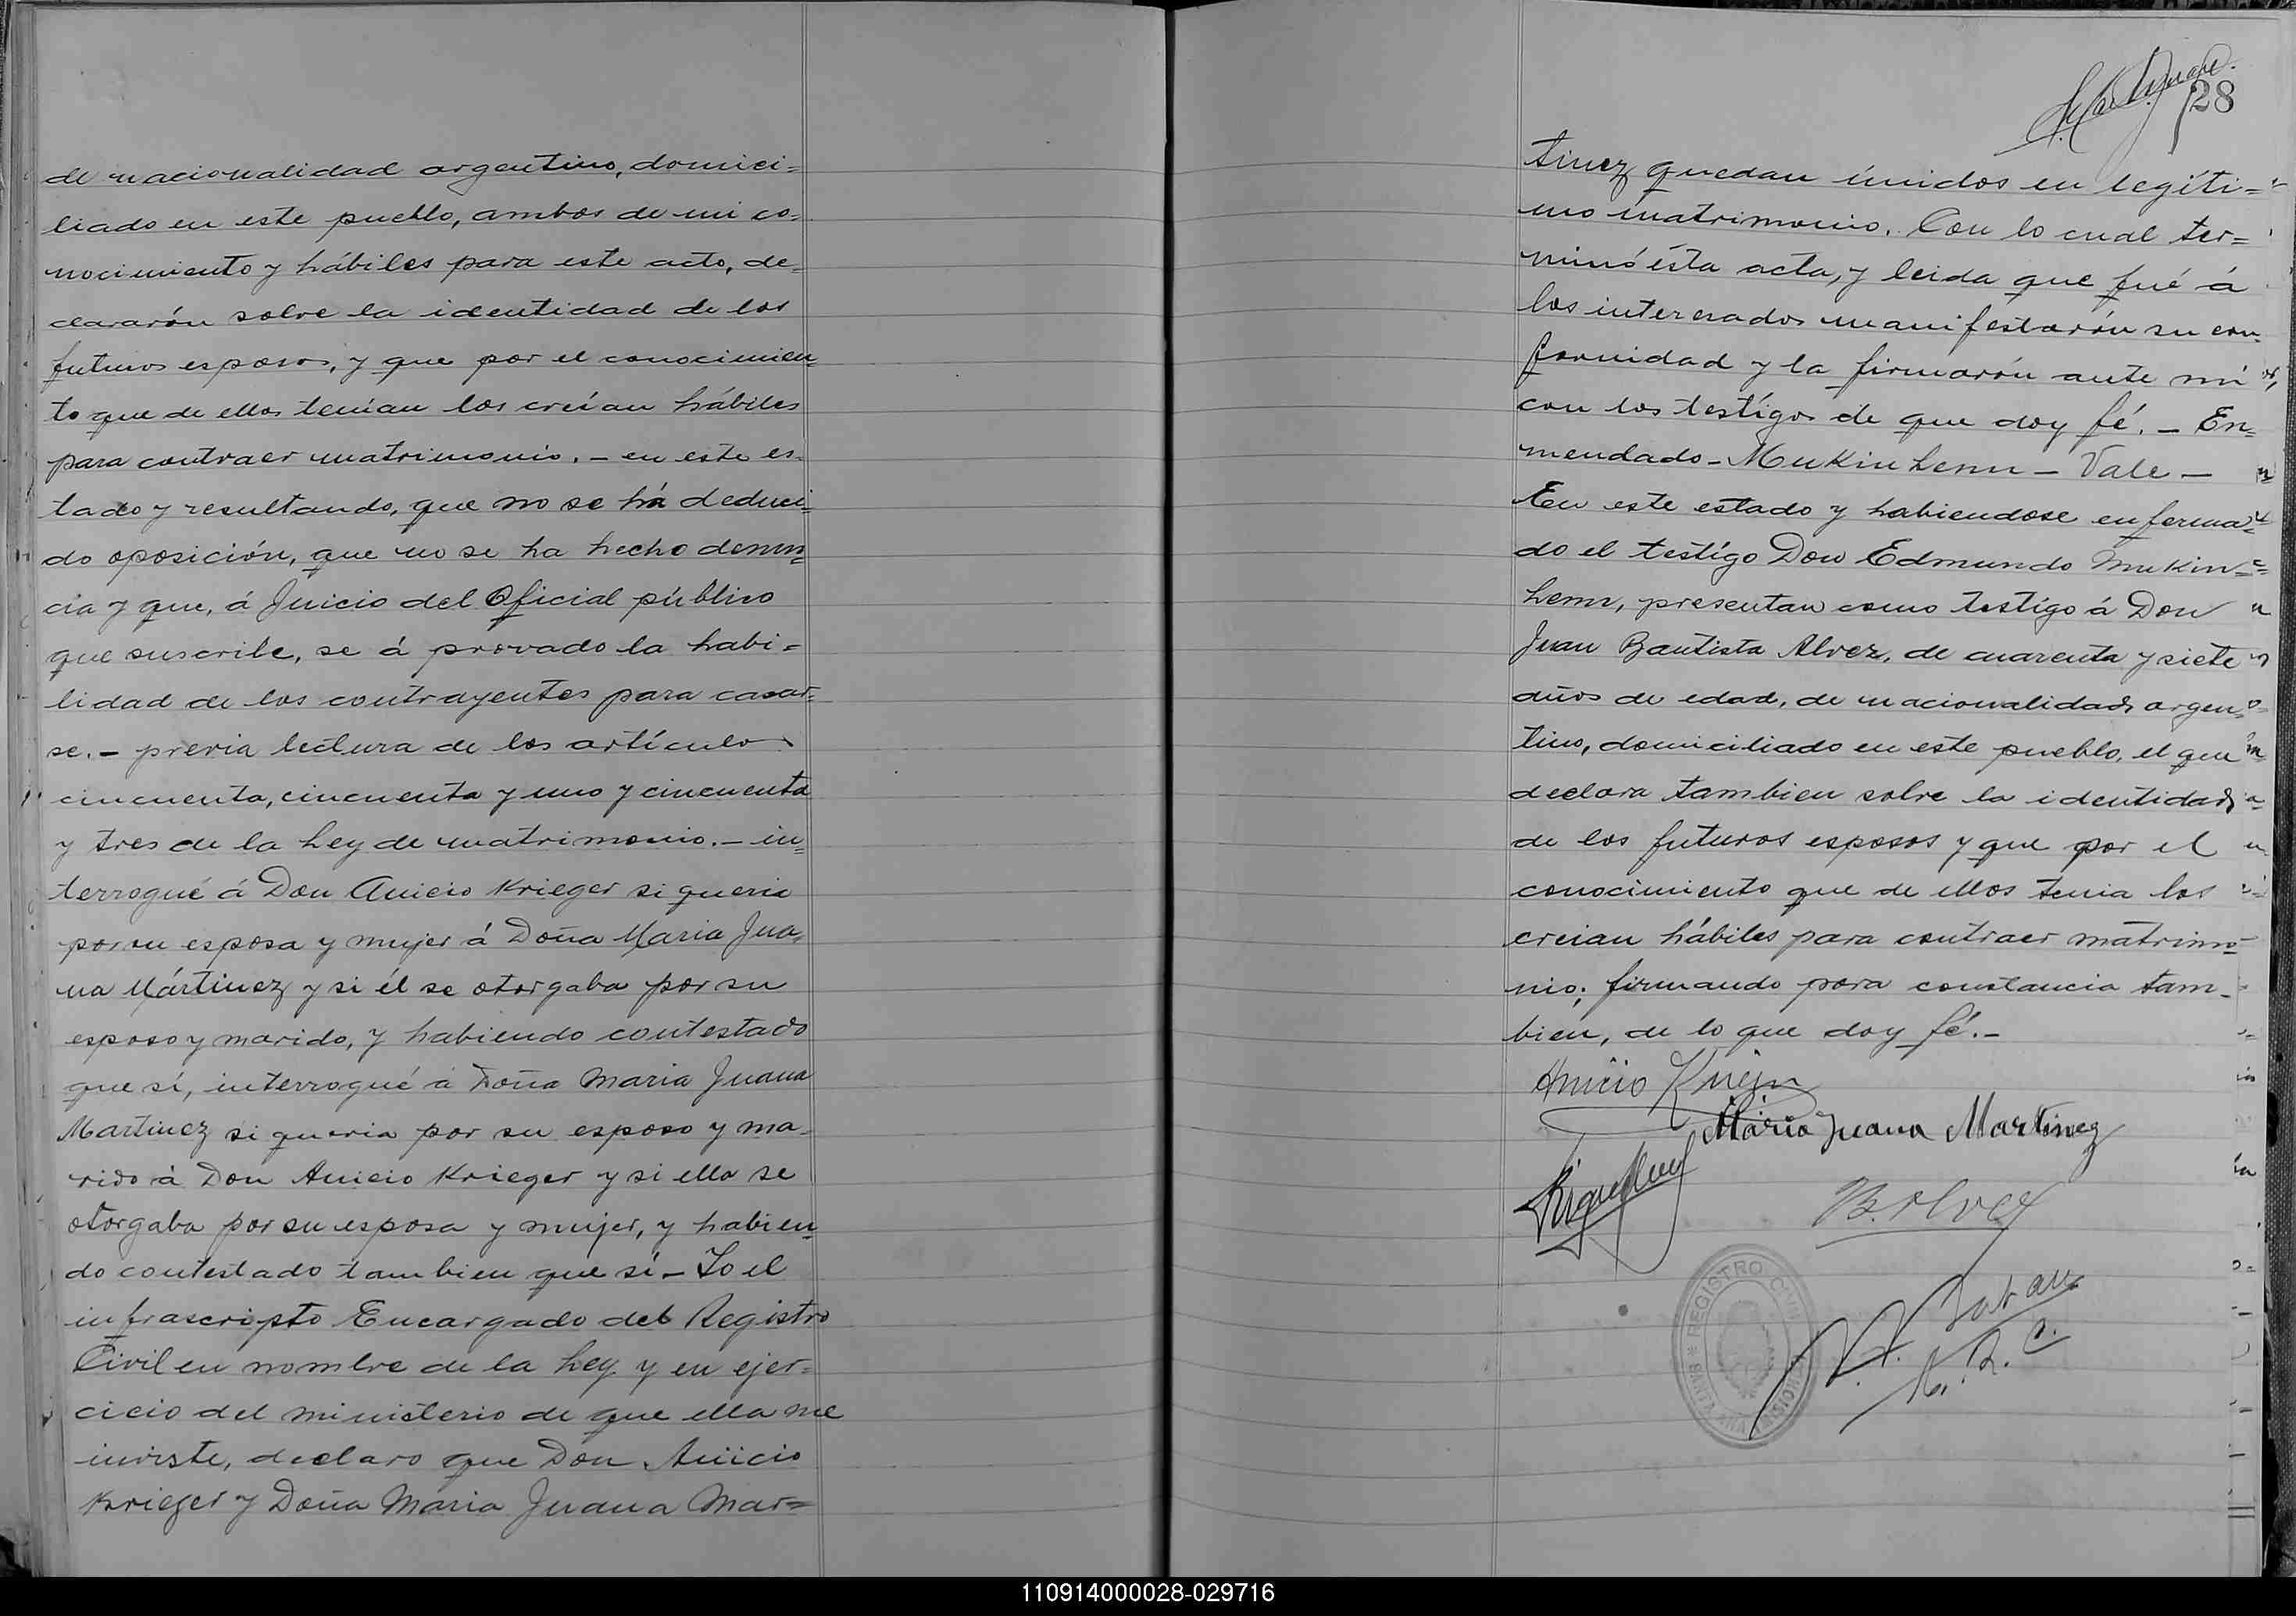 de nacionalidad argentino, domici=
liado en este pueblo, ambos de mi co=
nocimiento y hábiles para este acto, de=
clararón sobre la identidad de los
futuros esposos, y que por el conocimien=
to que de ellos tenían los creían hábiles
para contraer matrimonio. - en este es-
tado y resultando, que no se há deduci=
do oposición, que no se ha hecho denun=
cia y que, á Juicio del Oficial público
que suscribe, se á provado la habi=
lidad de los contrayentes para casar=
se. - previa lectura de los artículos
cincuenta, cincuenta y uno y cincuenta
y tres de la Ley de matrimonio. - in=
terrogué á Don Anicio Krieger si queria
por su esposa y mujer á Doña Maria Jua=
na Mártinez y si él se otorgaba por su
esposo y marido, y habiendo contestado
que sí, interrogué á Doña Maria Juana
Martinez si queria por su esposo y ma-
rido á Don Anicio Krieger y si ella se
otorgaba por su esposa y mujer, y habien=
do contestado tambien que sí - Yo el
infrascripto Encargado del Registro
Civil en nombre de la Ley y en ejer=
cicio del ministerio de que ella me
inviste, declaro que Don Anicio
Krieger y Doña Maria Juana Mar=
28
tinez quedan únidos en legíti=
mo matrimonio. Con lo cual ter=
minó ésta acta, y leida que fué á
los interesados manifestarón su con=
formidad y la firmarón ante mí
con los testígos de que doy fé. - En=
mendado - Mukinhenn - Vale -
En este estado y habiendose enferma=
do el testígo Don Edmundo Mukin=
henn, presentan como testígo á Don
Juan Bautista Alvez, de cuarenta y siete
años de edad, de nacionalidad argen=
tino, domiciliado en este pueblo, el que
declara tambien sobre la identidad
de los futuros esposos y que por el
conocimiento que de ellos tenia los
creian hábiles para contraer matrimo=
nio; firmando para constancia tam-
bien, de lo que doy fé. -
Anicio Krieger
Maria Juana Martinez
B. Alvez
REGISTRO CIVIL
SANTA ANA MISIONES
110914000028-029716